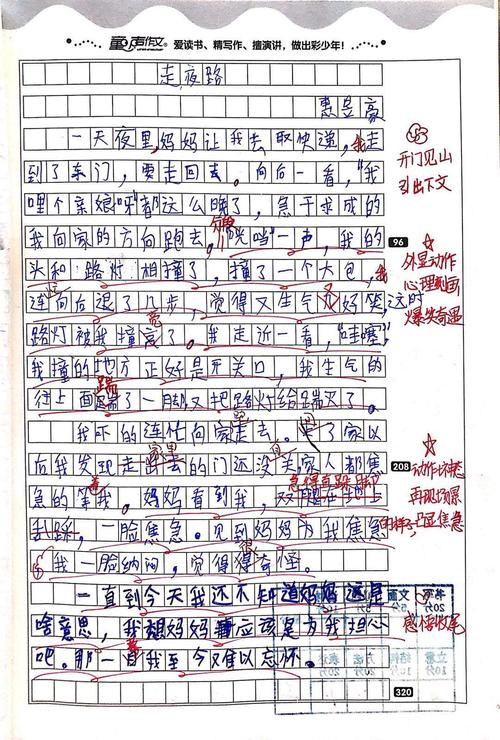 童声作文 爱读书、精写作、擅演讲，做出彩少年！
走夜路
惠昱豪
一天夜里,妈妈让我去取快递,我走
到了东门,要走回去。向后一看,"我
哩个亲娘呀"都这么晚了,急于求成的
我向家的方向跑去,"咣当"一声,我的
头和路灯相撞了,撞了一个大包,我
连向后退了几步,觉得又生气又好笑,这时
路灯被我撞亮了。我走近一看,"哇噻"
我撞的地方正好是开关口,我生气的
往上面踹了一脚又把路灯给踹灭了。
我吓的连忙向家走去。到了家以
后我发现走出去的门还没关家人都焦
急的等我。妈妈看到我,
急得直跺脚
乱跺,一脸焦急。见到妈妈为我焦急的样子,
我一脸纳闷,觉得很奇怪。
一直到今天我还不知道妈妈这是
啥意思,我想妈妈应该是为我担心
吧。那一夜我至今又难以忘怀。
开门见山
引出下文
96
外星动作
心理刻画
爆笑奇遇
208
动作神态
再现场景
凸显焦急
感悟收尾
320